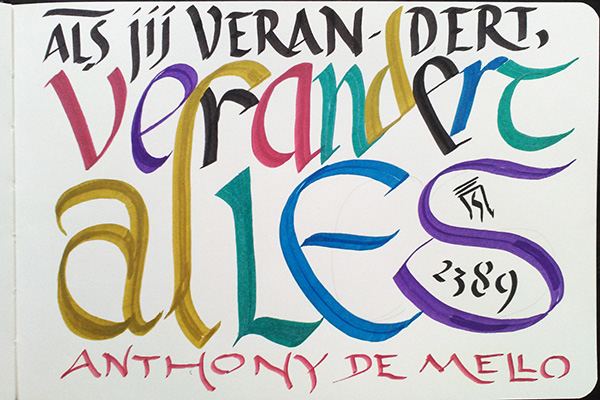 ALS jij VERAN-DERT,
verandert
alLES
2389
ANTHONY DE MELLO